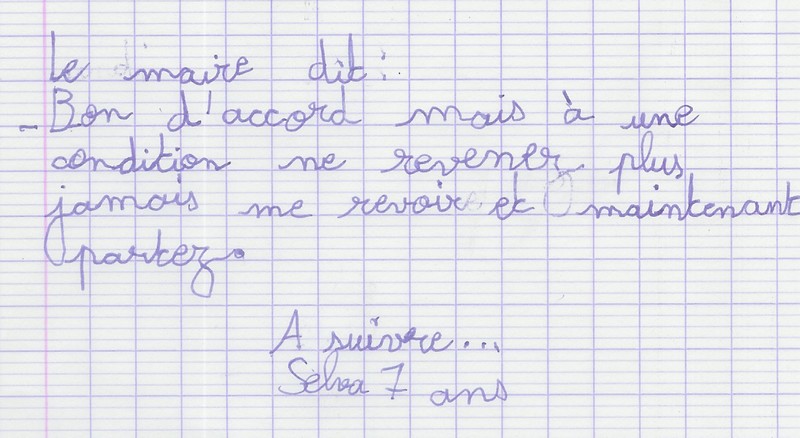 Le maire dit :
- Bon d'accord mais à une
condition ne revener plus
jamais me revoir et maintenant
partez.
A suivre...
Selva 7 ans